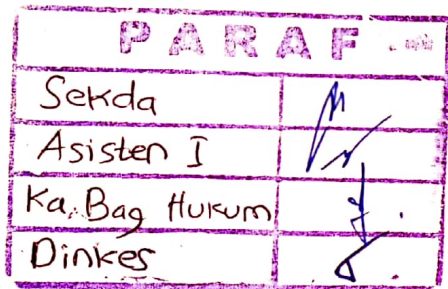 PARAF
Sekda
Asisten I
Ka. Bag Hukum
Dinkes